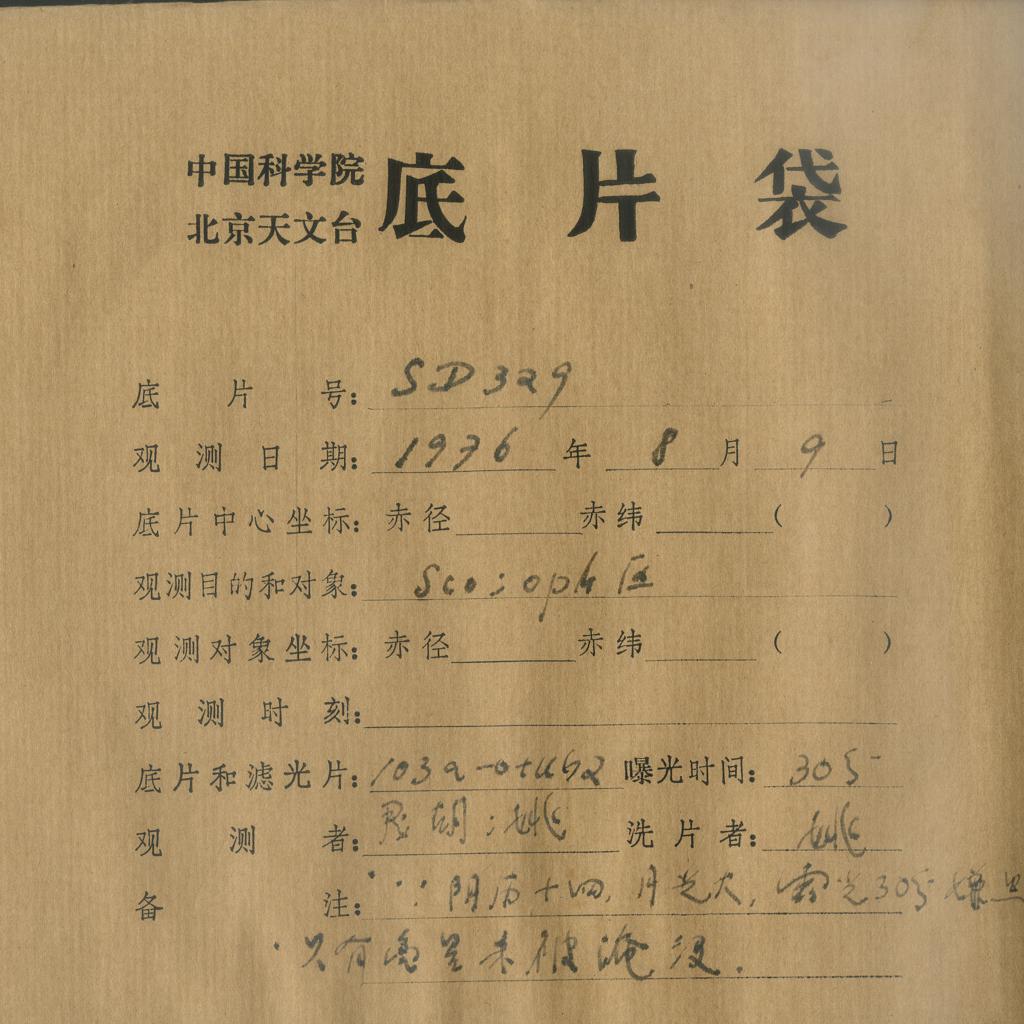 中国科学院
北京天文台
底片袋
底片号: SD329
观测日期: 1976年8月9日
底片中心坐标: 赤径 赤纬 ( )
观测目的和对象: Sco: oph 区
观测对象坐标: 赤径 赤纬 ( )
观测时刻:
底片和滤光片: 103a-0+UG2 曝光时间: 30分
观测者: 胡: 姚 洗片者: 姚
备注: 阴历十四, 月光大, 露光30分嫌
只有亮星未被淹没.